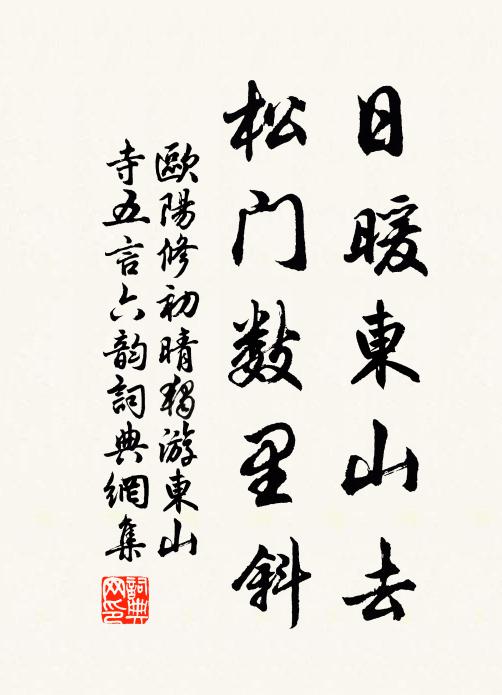 日暖東山去
松门数里斜
歐陽修初晴獨游東山
寺五言六韵詞典網集